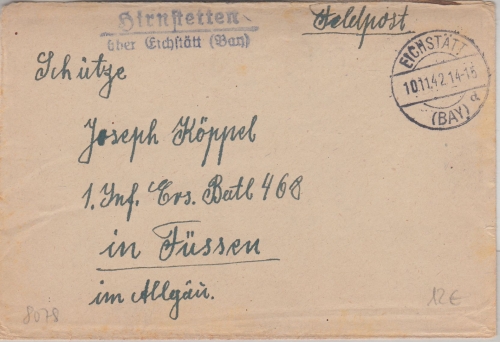 Hirnstetten
über Eichstätt (Bay)
Feldpost
EICHSTÄTT
10.11.42.14-15
(BAY) a
Schütze
Joseph Köppel
1. Inf. Ers. Batl 468
in Füssen
im Allgäu.
8078
12€